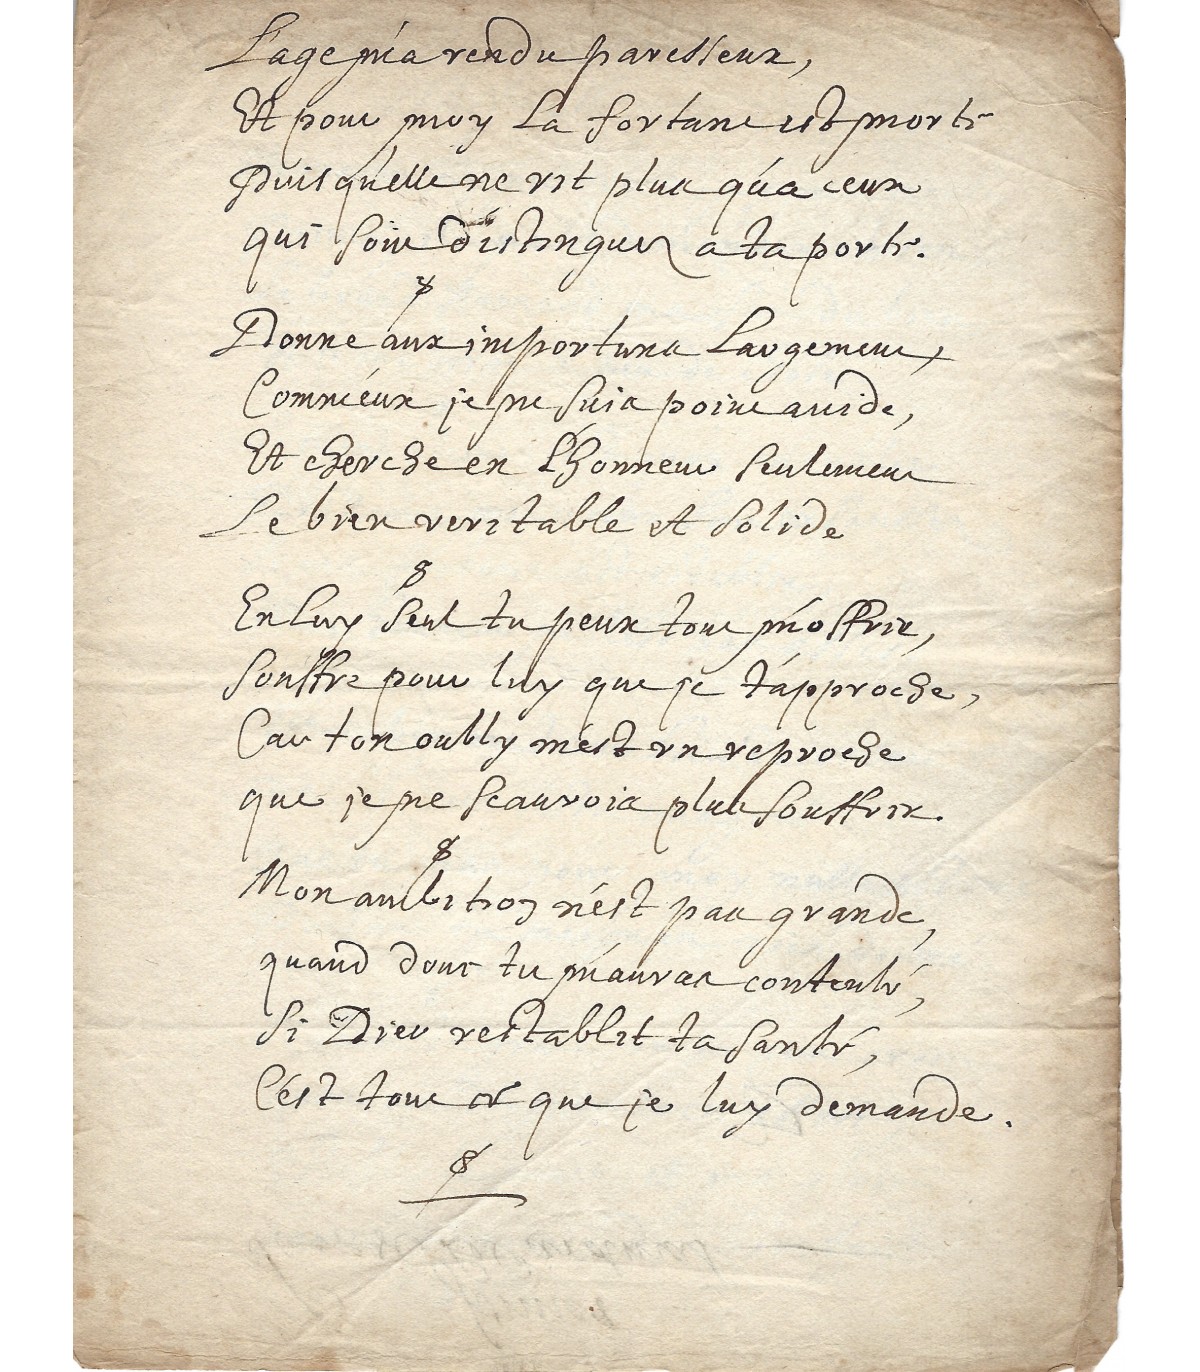 L'age m'a rendu paresseux,
Et pour moy La fortune est morte
Puisqu'elle ne rit plus qu'a ceux
qui sont distinguez a ta porte.
Donne aux importuns Largement,
Comm'eux je ne suis point auide,
Et cherche en L'honneur seulement
Le bien veritable et solide
En luy seul tu peux tout m'offrir,
souffre pour luy que je t'approche,
Car ton oubly m'est vn reproche
que je ne scaurois plus souffrir.
Mon ambition n'est pas grande,
quand donc tu m'auras contenté,
Si Dieu restablit ta santé,
C'est tout ce que je luy demande.